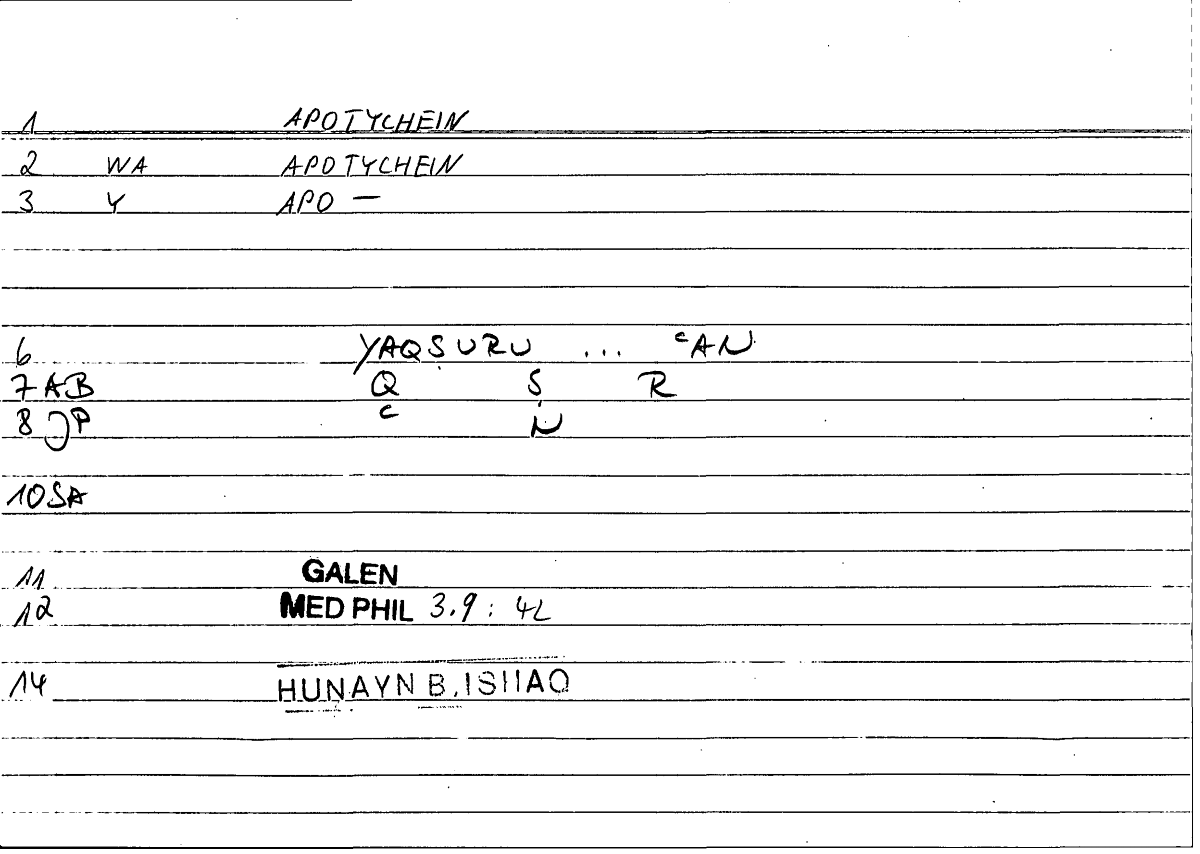 1 APOTYCHEIN
2 WA APOTYCHEIN
3 Y APO —
6 YAQṢURU ... ᶜAN
7 AB Q Ṣ R
8 JP ᶜ N
10 SA
11 GALEN
12 MED PHIL 3.9 : 4L
14 HUNAYN B. ISHAQ